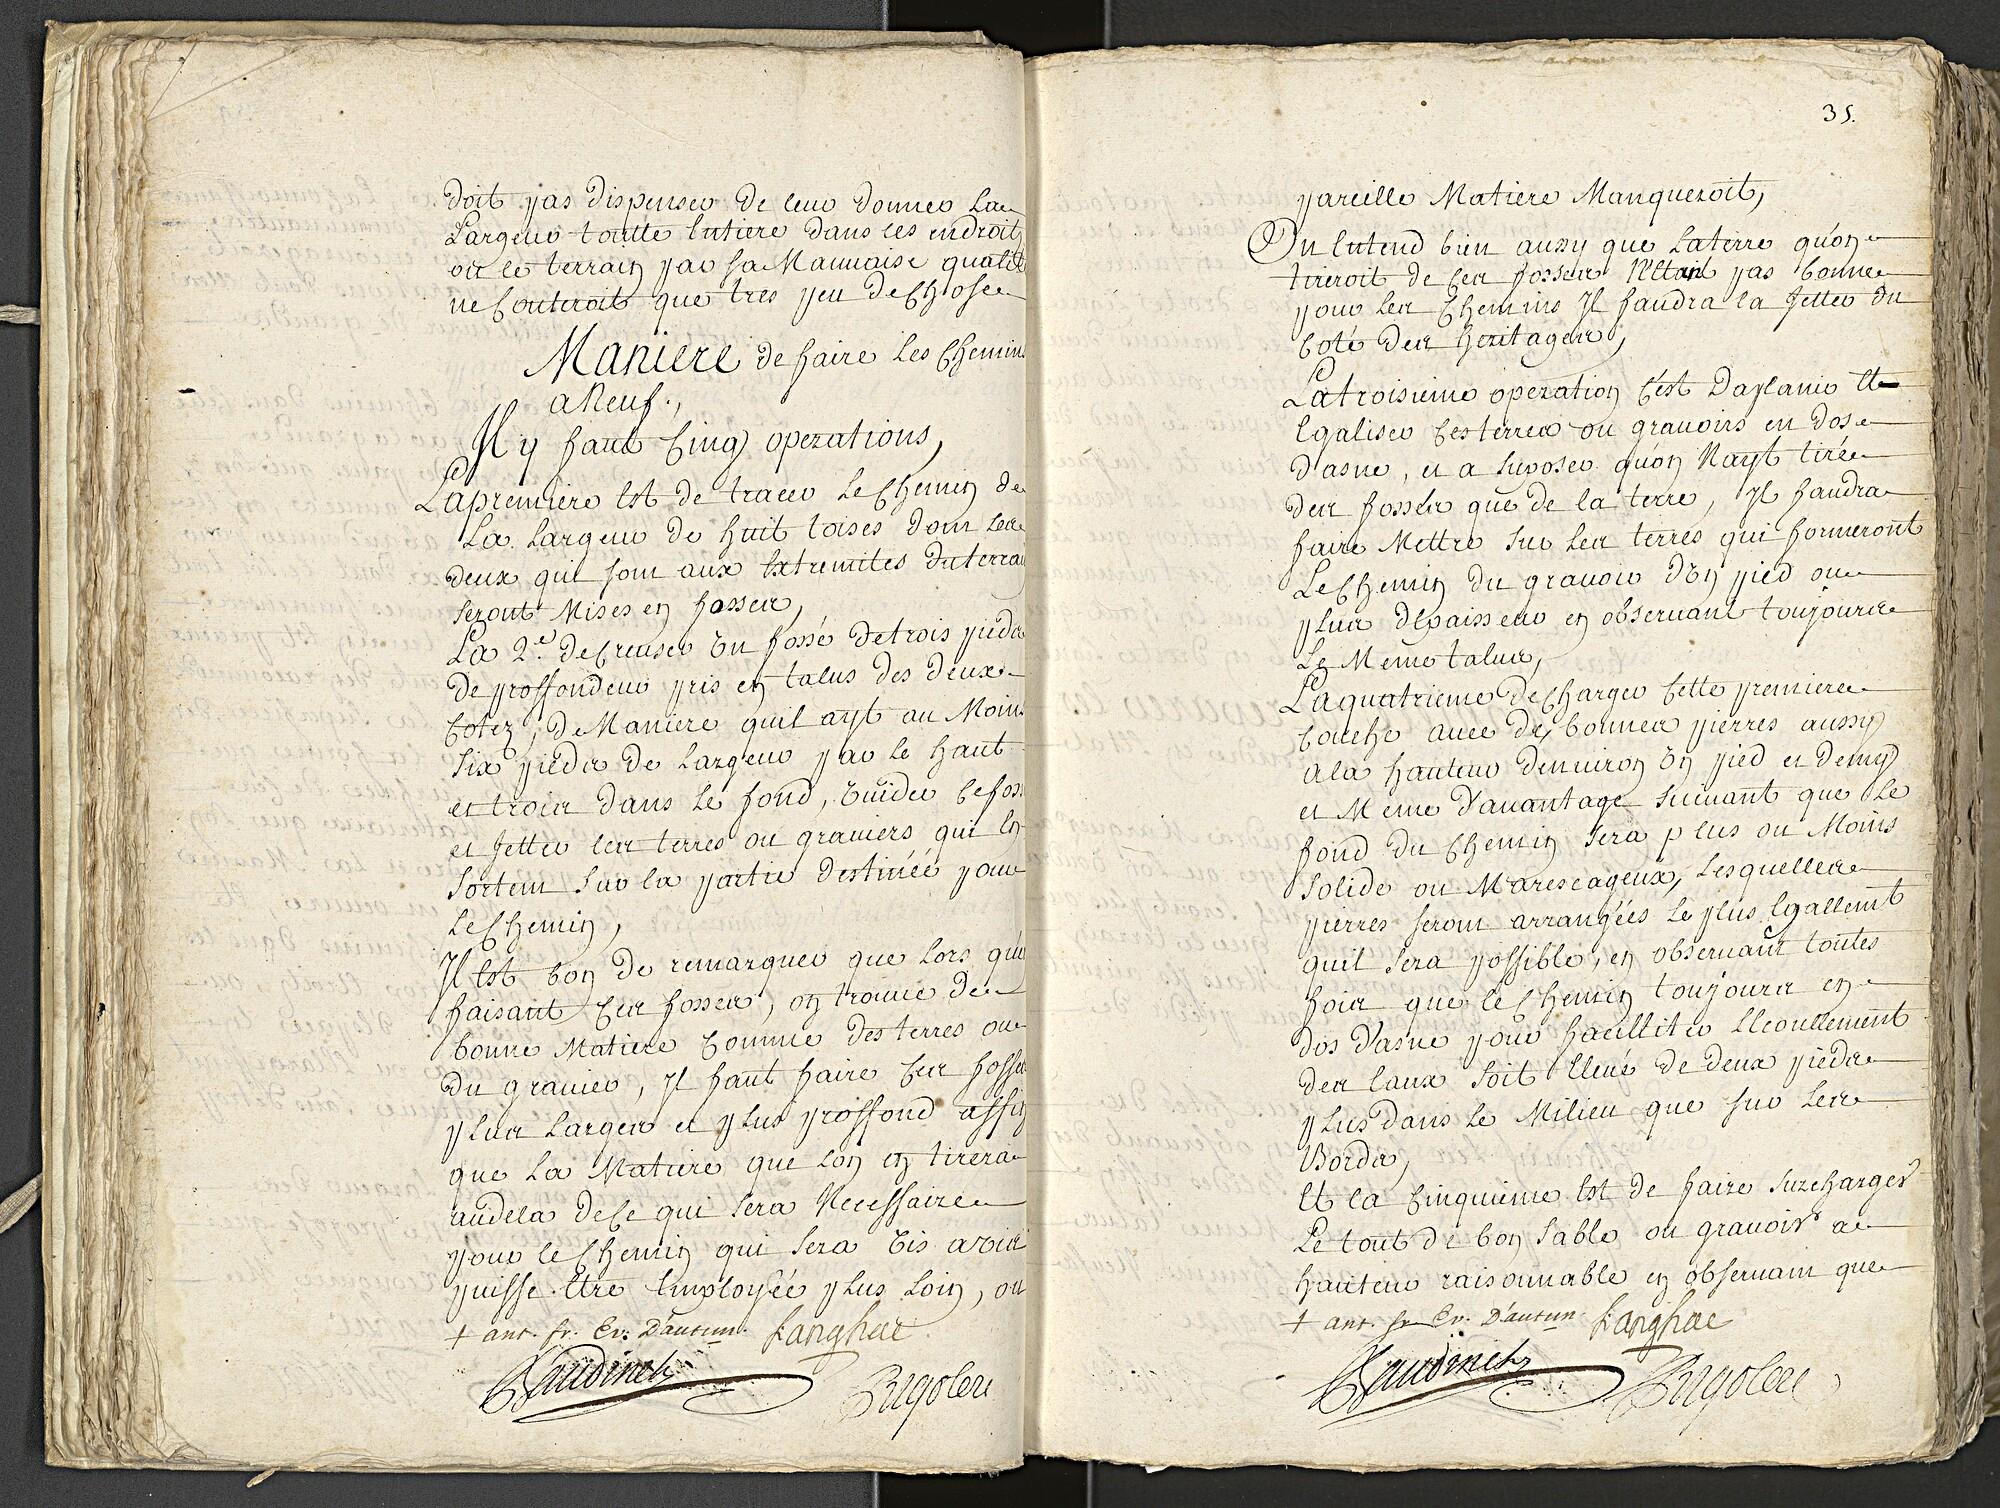 doit pas dispenser de leur donner La
Largeur toutte Entiere dans ces endroits
ou le terrain par sa Mauuaise qualité
ne Couteroit que tres peu de Chose
Maniere de faire Les Chemins
a Neuf.,
Il y faut Cinq operations,
La premiere Est de tracer Le Chemin de
La Largeur de huit toises dont Les
deux qui sont aux Extremites du terrain
seront Mises en fossez,
La 2.e de Creuser un fossé de trois pieds
de proffondeur pris en talus des deux
Cotez, de Maniere quil ayt au Moins
Six pieds de Largeur par le haut
et trois dans Le fond, Vuider Ce fossé
et Jetter les terres ou grauiers qui En
Sortent Sur la partie destinéé pour
Le Chemin,
Il Est bon de remarquer que Lors qu'en
faisant Ces fossez, on trouue de
bonne Matiere Comme des terres ou
du grauier, Il faut faire Ces fossez
plus Larges et plus proffond affin
que La Matiere que Lon en tirera
audela de Ce qui Sera Necessaire
pour le Chemin qui Sera Vis avis
puisse Etre Employéé plus Loin, ou
+ ant. fr. Ev. D'autun. Langhac
Baudinet Rigoley
35.
pareille Matiere Manqueroit,
On Entend bien aussy que La terre qu'on
tireroit de Ces fossez N'Etant pas bonne
pour Les Chemins Il faudra la Jetter du
Coté des heritages,
La troisieme operation C'est D'aplanir Et
Egaliser Ces terres ou grauoirs en dos
d'asne, et a Suposer quon Nayt tiré
des fossez que de la terre, Il faudra
faire Mettre Sur Les terres qui formeront
Le Chemin du grauoir d'Un pied ou
plus depaisseur en obseruant toujours
Le Meme talus,
La quatrieme de Charger Cette premiere
Couche auec de bonnes pierres aussy
a la hauteur denuiron Un pied et demy
et Meme dauantage Suiuant que Le
fond du Chemin Sera plus ou Moins
Solide ou Marescageux, Lesquelles
pierres Seront arrangéés Le plus Egallemt
quil Sera possible, en obseruant toutes
fois que le Chemin toujours en
dos d'asne pour facilliter LEcoullement
des Eaux Soit Eleué de deux pieds
plus dans Le Milieu que Sur Les
Bords,
Et la Cinquieme Est de faire Surcharger
Le tout de bon Sable ou grauoir a
hauteur raisonnable en obseruant que
+ ant. fr. Ev. D'autun. Langhac
Baudinet Rigoley